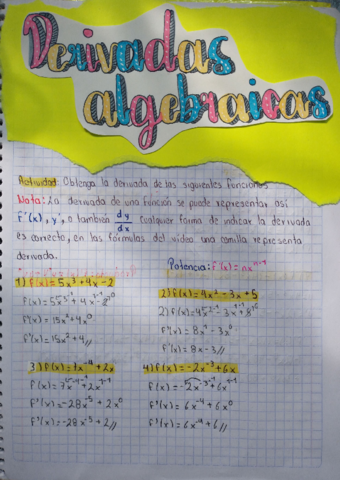 Derivadas
algebraicas
Actividad: Obtenga la derivada de las siguientes funciones
Nota: La derivada de una función se puede representar así
f'(x), y', o también dy/dx Cualquier forma de indicar la derivada
es correcto, en las fórmulas del video una comilla representa
derivada.
Potencia: f'(x) = nxⁿ⁻¹
1) f(x) = 5x³ + 4x - 2
f'(x) = 15x² + 4x⁰
f'(x) = 15x² + 4//
2) f(x) = 4x² - 3x + 5
f'(x) = 8x¹ - 3x⁰
f'(x) = 8x - 3//
3) f(x) = 7x⁻⁴ + 2x
f'(x) = -28x⁻⁵ + 2x⁰
f'(x) = -28x⁻⁵ + 2//
4) f(x) = -2x⁻³ + 6x
f'(x) = 6x⁻⁴ + 6x⁰
f'(x) = 6x⁻⁴ + 6//